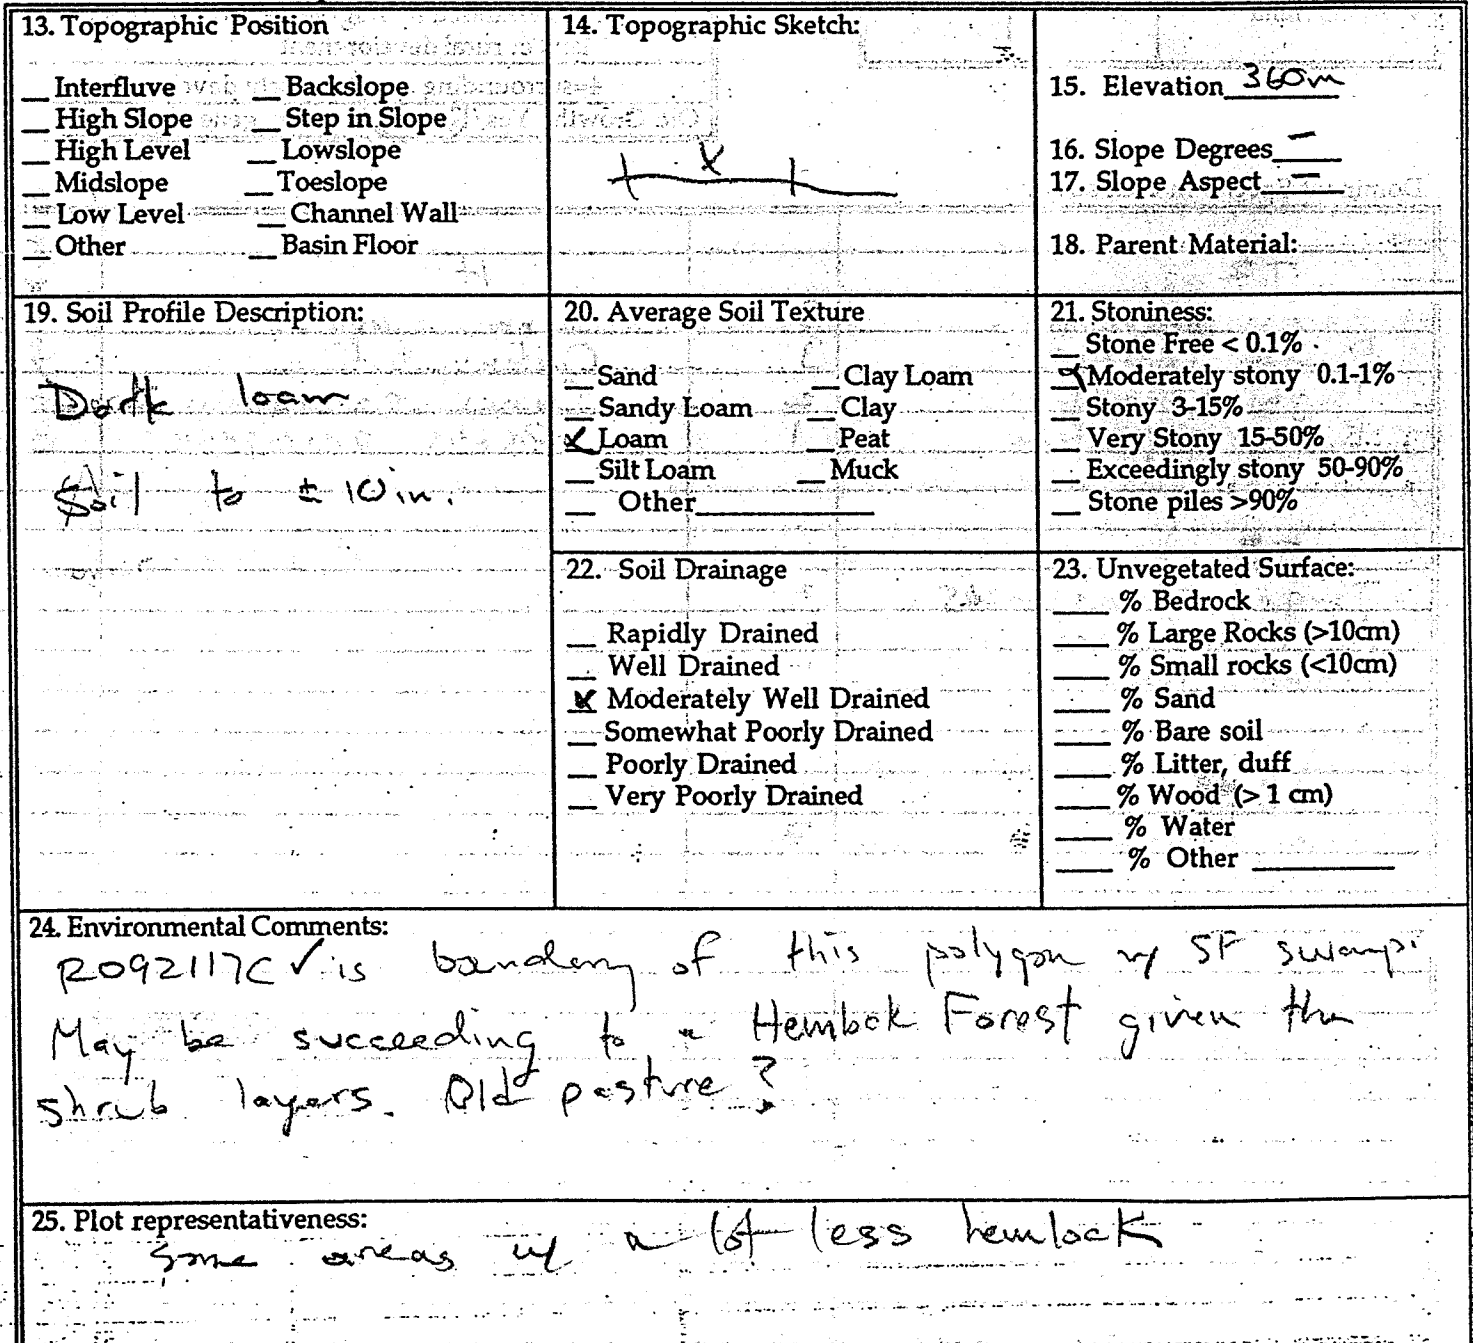 13. Topographic Position
__ Interfluve __ Backslope
__ High Slope __ Step in Slope
__ High Level __ Lowslope
__ Midslope __ Toeslope
__ Low Level __ Channel Wall
__ Other __ Basin Floor
14. Topographic Sketch:
x
15. Elevation 360m
16. Slope Degrees –
17. Slope Aspect –
18. Parent Material:
19. Soil Profile Description:
Dark loam
Soil to ± 10 in.
20. Average Soil Texture
__ Sand __ Clay Loam
__ Sandy Loam __ Clay
x Loam __ Peat
__ Silt Loam __ Muck
__ Other__________
21. Stoniness:
__ Stone Free < 0.1%
x Moderately stony 0.1-1%
__ Stony 3-15%
__ Very Stony 15-50%
__ Exceedingly stony 50-90%
__ Stone piles >90%
22. Soil Drainage
__ Rapidly Drained
__ Well Drained
x Moderately Well Drained
__ Somewhat Poorly Drained
__ Poorly Drained
__ Very Poorly Drained
23. Unvegetated Surface:
____ % Bedrock
____ % Large Rocks (>10cm)
____ % Small rocks (<10cm)
____ % Sand
____ % Bare soil
____ % Litter, duff
____ % Wood (> 1 cm)
____ % Water
____ % Other __________
24. Environmental Comments:
R092117C ✓ is boundary of this polygon w/ SF swamp.
May be succeeding to a Hemlock Forest given the
shrub layers. Old pasture?
25. Plot representativeness:
some areas w/ a lot less hemlock